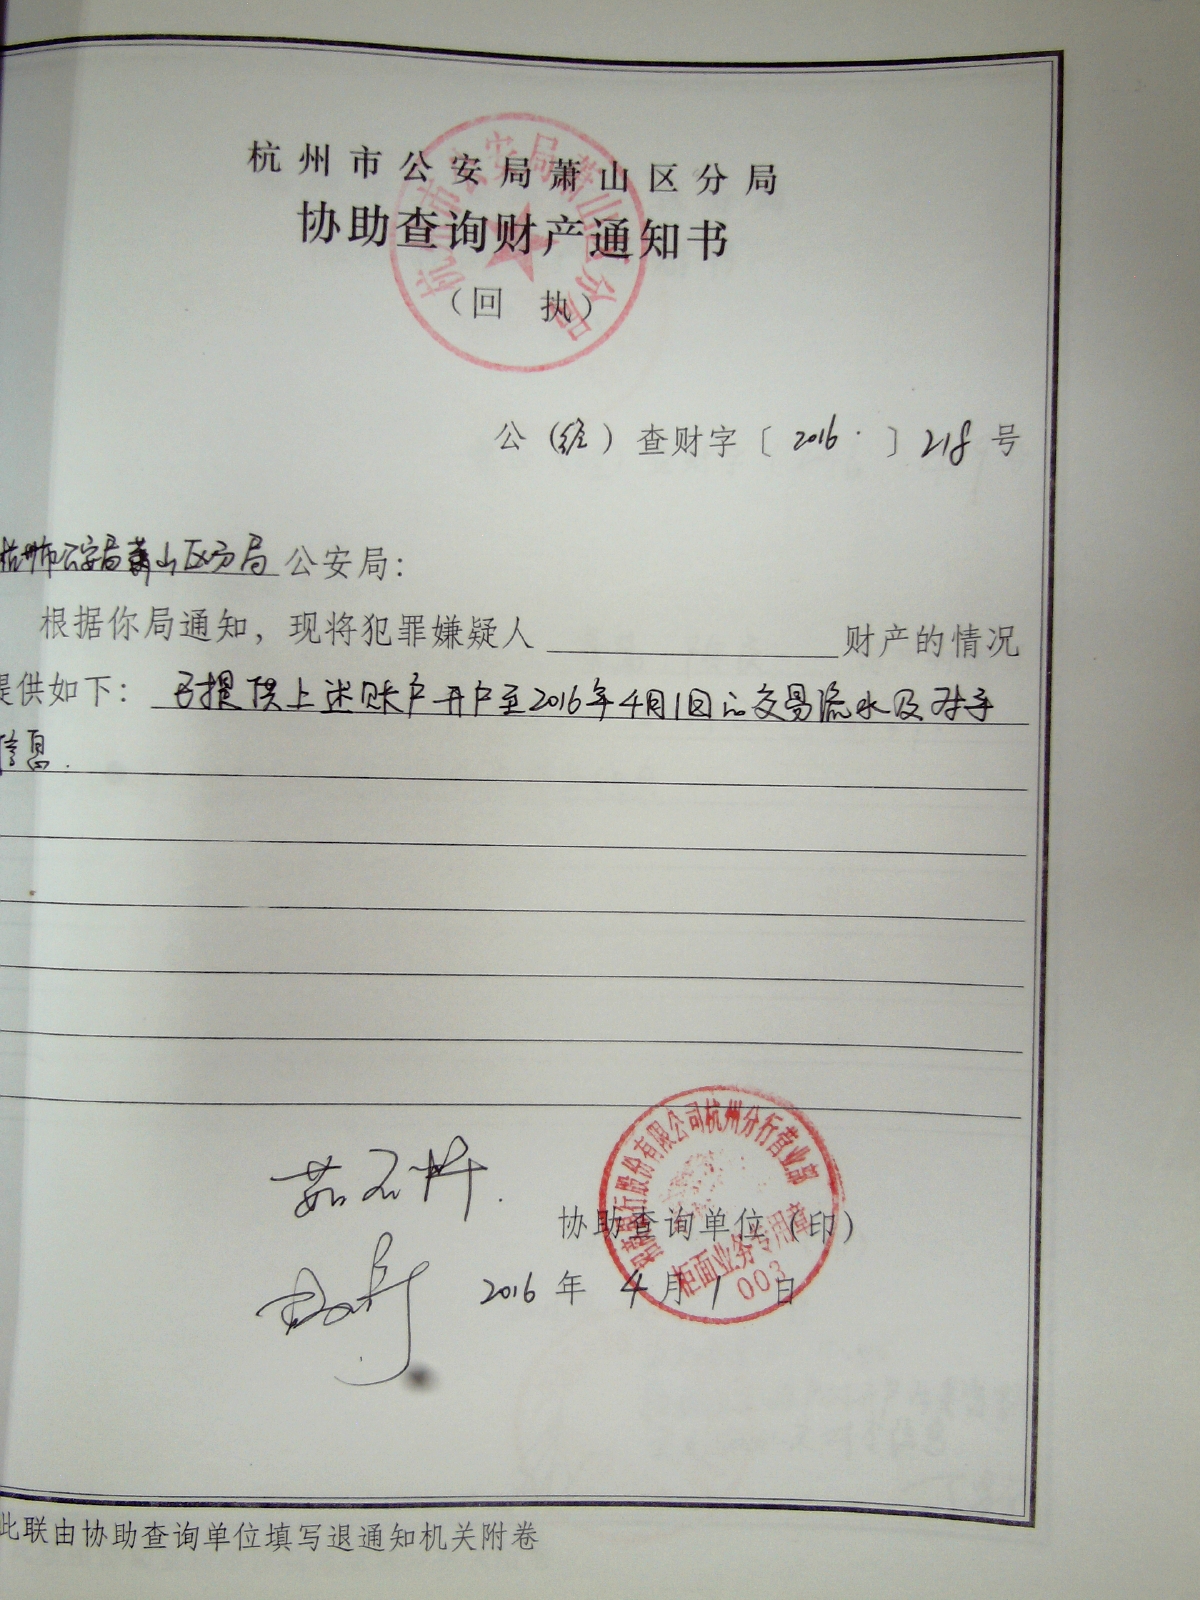 杭州市公安局萧山区分局
协助查询财产通知书
（回 执）
杭州市公安局萧山区分局
公（经）查财字〔2016〕218号
杭州市公安局萧山区分局公安局：
根据你局通知，现将犯罪嫌疑人 财产的情况
提供如下：已提供上述账户开户至2016年4月1日的交易流水及对手
信息.
银行股份有限公司杭州分行营业部
柜面业务专用章
003
协助查询单位（印）
2016年4月1日
此联由协助查询单位填写退通知机关附卷